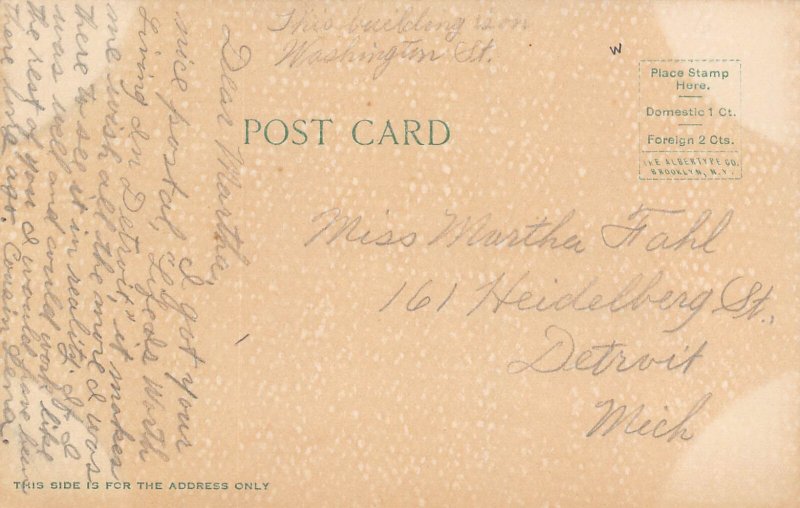 This building is on
Washington St.
w
POST CARD
Place Stamp
Here.
Domestic 1 Ct.
Foreign 2 Cts.
THE ALBERTYPE CO.
BROOKLYN, N.Y.
Miss Martha Fahl
161 Heidelberg St.,
Detroit
Mich
Dear Martha,
I got your
nice postal, "Life's Worth
Living In Detroit," it makes
me wish all the more I was
there to see it in reality. If I
was well and could work like
the rest of you I would have been
there long ago. Cousin Lena.
THIS SIDE IS FOR THE ADDRESS ONLY